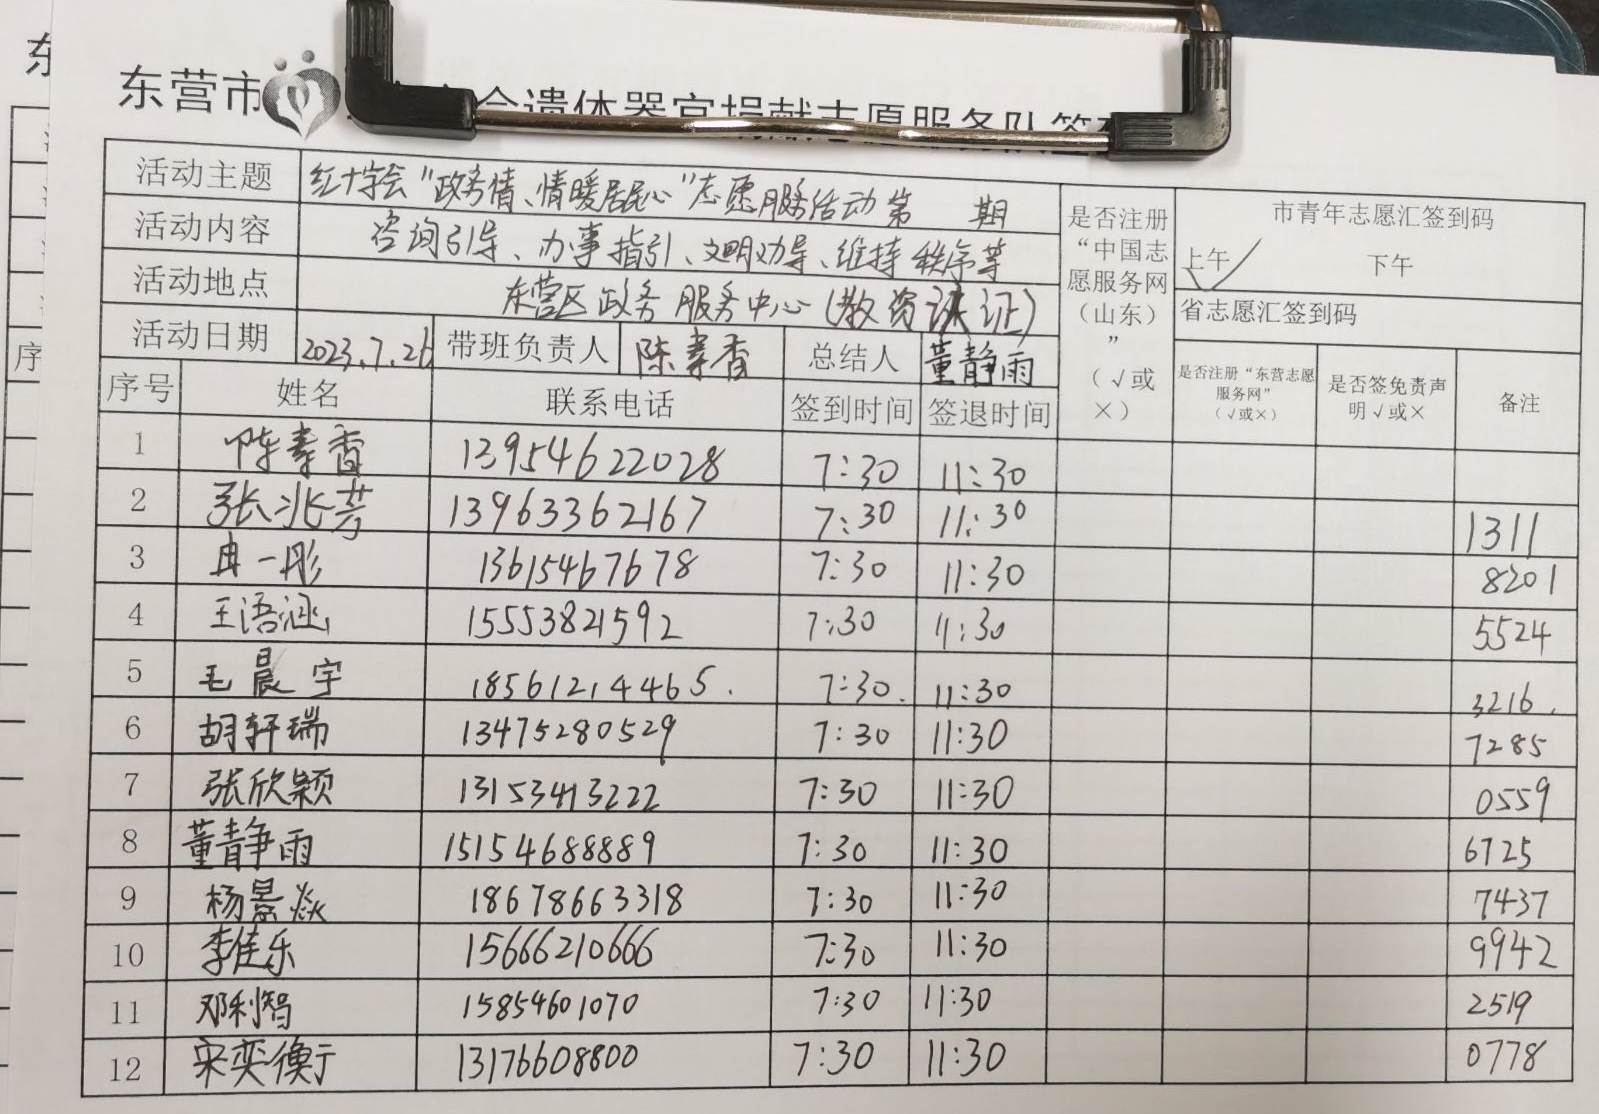 东营市 会遗体器官捐献志愿服务队签
活动主题 红十字会“政务情、情暖居民心”志愿服务活动第 期
活动内容 咨询引导、办事指引、文明劝导、维持秩序等
活动地点 东营区政务服务中心(教资认证)
活动日期 2023.7.26 带班负责人 陈素香 总结人 董静雨
是否注册“中国志愿服务网(山东)”(√或×)
市青年志愿汇签到码
上午√ 下午
省志愿汇签到码
序号 姓名 联系电话 签到时间 签退时间 是否注册“东营志愿服务网”(√或×) 是否签免责声明√或× 备注
1 陈素香 13954622028 7:30 11:30
2 张兆芳 13963362167 7:30 11:30 1311
3 冉一彤 13615467678 7:30 11:30 8201
4 王语涵 15553821592 7:30 11:30 5524
5 毛晨宇 18561214465. 7:30. 11:30 3216.
6 胡轩瑞 13475280529 7:30 11:30 7285
7 张欣颖 13153413222 7:30 11:30 0559
8 董静雨 15154688889 7:30 11:30 6725
9 杨景焱 18678663318 7:30 11:30 7437
10 李佳乐 15666210666 7:30 11:30 9942
11 邓利智 15854601070 7:30 11:30 2519
12 宋奕衡 13176608800 7:30 11:30 0778